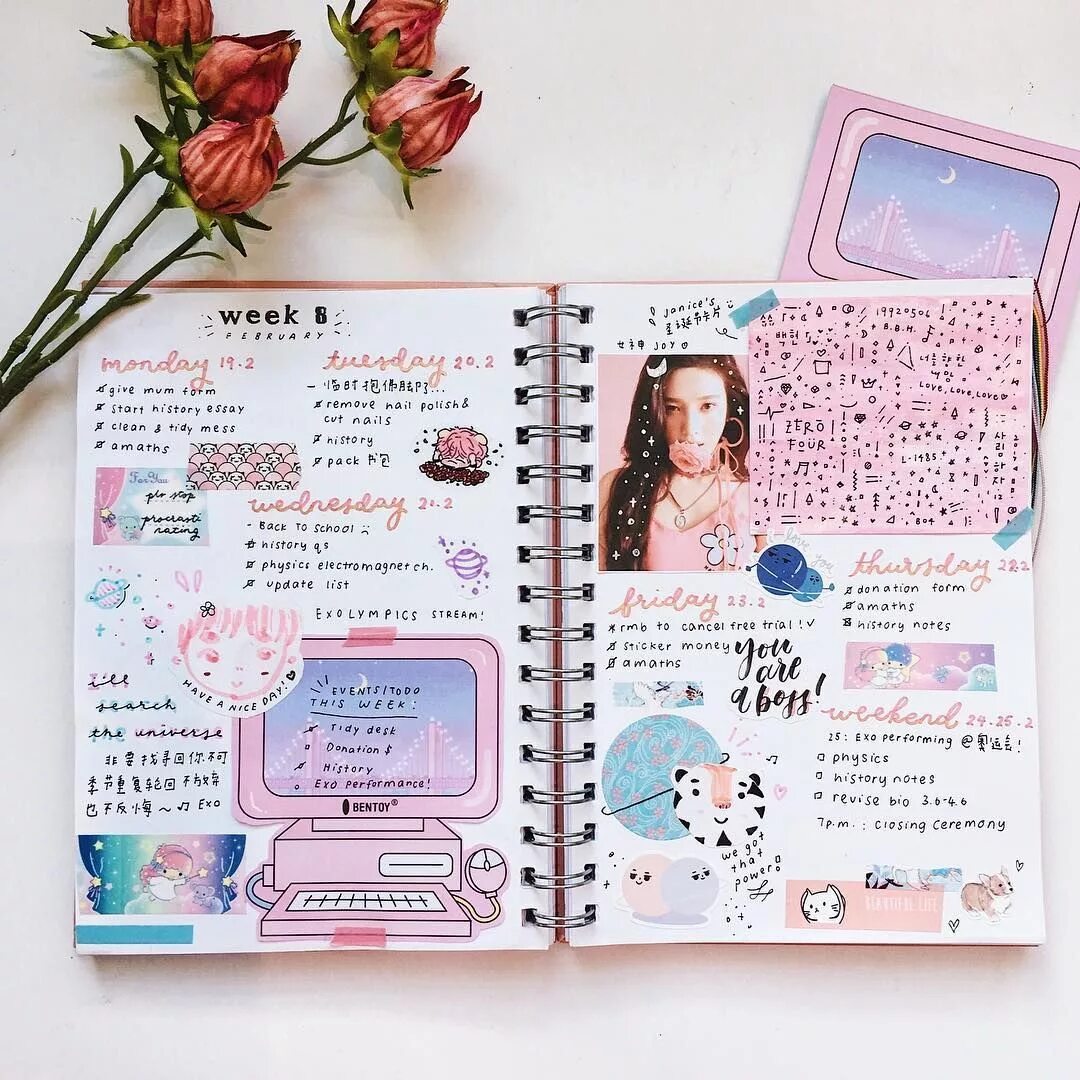 week 8
FEBRUARY
monday 19.2
give mum form
start history essay
clean & tidy mess
amaths
For You
pls stop
procrasti
nating
tuesday 20.2
- 临时抱佛脚了...
remove nail polish &
cut nails
history
pack 书包
wednesday 21.2
- Back to school
history qs
physics electromagnet ch.
update list
EXOLYMPICS STREAM!
HAVE A NICE DAY!
i'll
search
the universe
非要找寻回你不可
季节重复轮回 不放弃
也不反悔 ~ ♫ EXO
EVENTS/TODO
THIS WEEK:
Tidy desk
Donation $
History
EXO Performance!
BENTOY®
Janice's
圣诞节卡片
女神 JOY ♡
19920506
백현
B.B.H.
너를 향한
Love, Love, Love
ZERO
FOUR
L-1485
사
랑
하
자
B04
I love you
thursday 22.2
donation form
amaths
history notes
friday 23.2
* rmb to cancel free trial! ✓
sticker money
amaths
you
are
a boss!
weekend 24.25.2
25: EXO performing @奥运会!
physics
history notes
revise bio 3.6-4.6
7p.m.: Closing Ceremony
we got
that
power
BEAUTIFUL LIFE